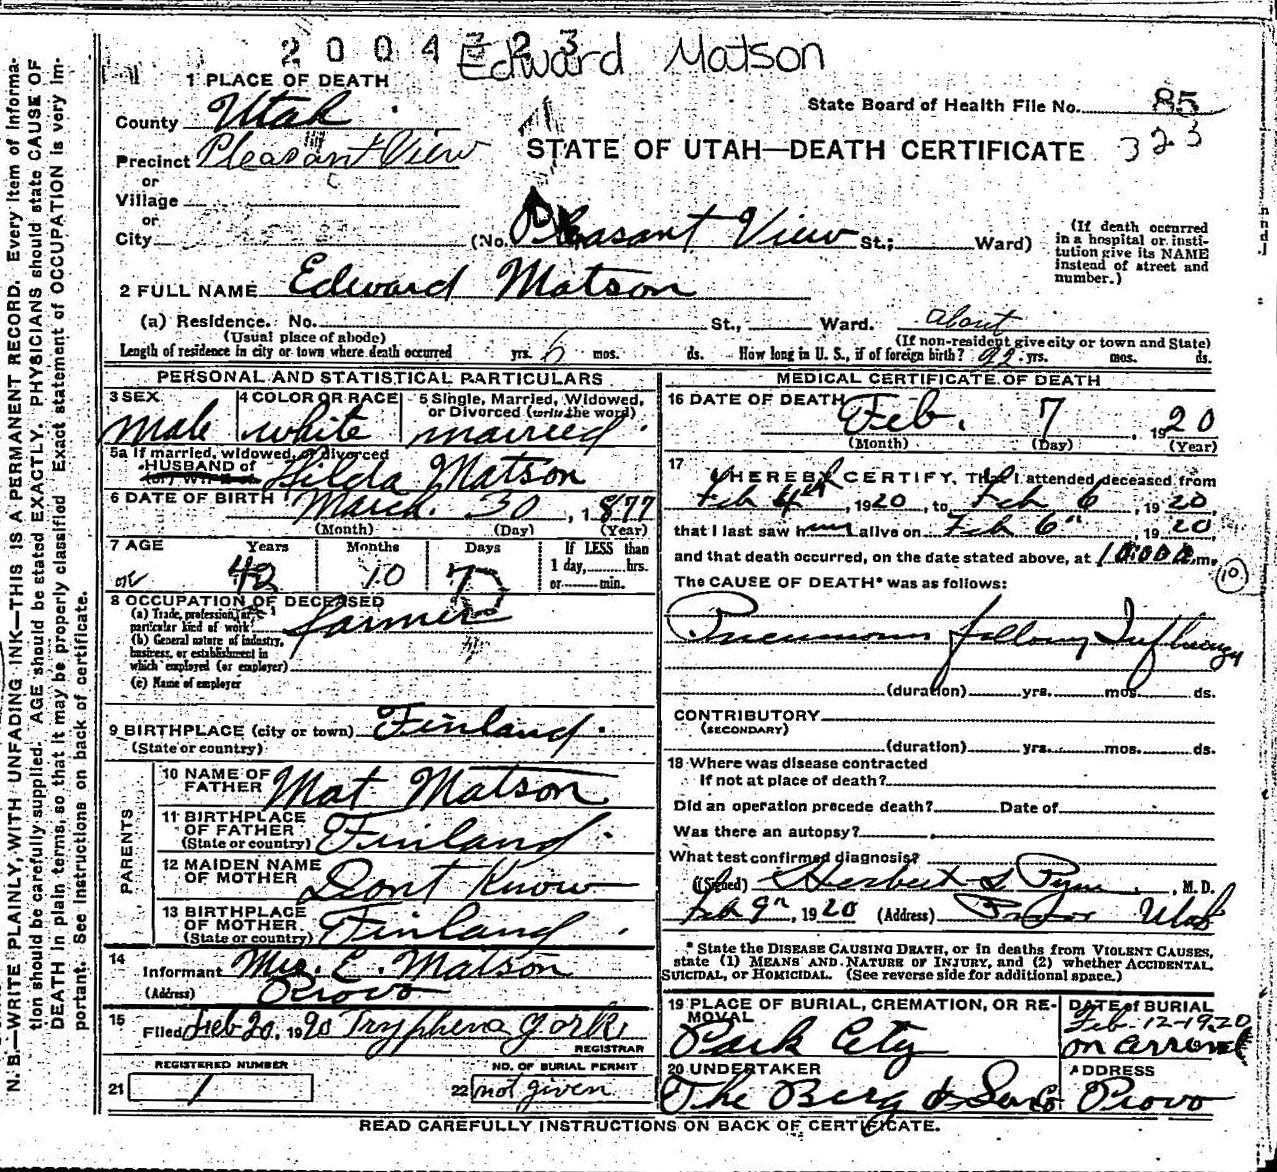 2004323
Edward Matson
1 PLACE OF DEATH
County Utah
State Board of Health File No. 85
323
STATE OF UTAH—DEATH CERTIFICATE
Precinct Pleasant View
or
Village
or
City (No. Pleasant View St.; Ward)
(If death occurred in a hospital or institution give its NAME instead of street and number.)
2 FULL NAME Edward Matson
(a) Residence. No. St., Ward. About
(Usual place of abode) (If non-resident give city or town and State)
Length of residence in city or town where death occurred yrs. 6 mos. ds. How long in U. S., if of foreign birth? 22 yrs. mos. ds.
PERSONAL AND STATISTICAL PARTICULARS
3 SEX male
4 COLOR OR RACE white
5 Single, Married, Widowed, or Divorced (write the word) married
5a If married, widowed, or divorced
HUSBAND of
(or) WIFE of Hilda Matson
6 DATE OF BIRTH March 30, 1877
(Month) (Day) (Year)
7 AGE Years 42 Months 10 Days 7
If LESS than 1 day, hrs. or min.
8 OCCUPATION OF DECEASED
(a) Trade, profession, or particular kind of work farmer
(b) General nature of industry, business, or establishment in which employed (or employer)
(c) Name of employer
9 BIRTHPLACE (city or town) Finland
(State or country)
PARENTS
10 NAME OF FATHER Mat Matson
11 BIRTHPLACE OF FATHER Finland
(State or country)
12 MAIDEN NAME OF MOTHER Dont Know
13 BIRTHPLACE OF MOTHER Finland
(State or country)
14 Informant Mrs. E. Matson
(Address) Provo
15 Filed Feb 20, 1920 Tryphena York
REGISTRAR
REGISTERED NUMBER
21 1
NO. OF BURIAL PERMIT
22 not given
MEDICAL CERTIFICATE OF DEATH
16 DATE OF DEATH Feb. 7, 1920
(Month) (Day) (Year)
17 I HEREBY CERTIFY, That I attended deceased from
Feb 4th, 1920, to Feb 6, 1920,
that I last saw him alive on Feb 6", 1920,
and that death occurred, on the date stated above, at 10:00 a.m.
10
The CAUSE OF DEATH* was as follows:
Pneumonia following Influenza
(duration) yrs. mos. ds.
CONTRIBUTORY
(SECONDARY)
(duration) yrs. mos. ds.
18 Where was disease contracted
If not at place of death?
Did an operation precede death? Date of
Was there an autopsy?
What test confirmed diagnosis?
(Signed) Herbert S Pyne, M. D.
Feb 9", 1920 (Address) Provo Utah
* State the DISEASE CAUSING DEATH, or in deaths from VIOLENT CAUSES, state (1) MEANS AND NATURE OF INJURY, and (2) whether ACCIDENTAL, SUICIDAL, or HOMICIDAL. (See reverse side for additional space.)
19 PLACE OF BURIAL, CREMATION, OR REMOVAL
Park City
DATE of BURIAL
Feb-12-1920
on arrival
20 UNDERTAKER
The Berg & Sons Co
ADDRESS
Provo
READ CAREFULLY INSTRUCTIONS ON BACK OF CERTIFICATE.
N. B.—WRITE PLAINLY, WITH UNFADING INK—THIS IS A PERMANENT RECORD. Every item of information should be carefully supplied. AGE should be stated EXACTLY. PHYSICIANS should state CAUSE OF DEATH in plain terms, so that it may be properly classified. Exact statement of OCCUPATION is very important. See instructions on back of certificate.